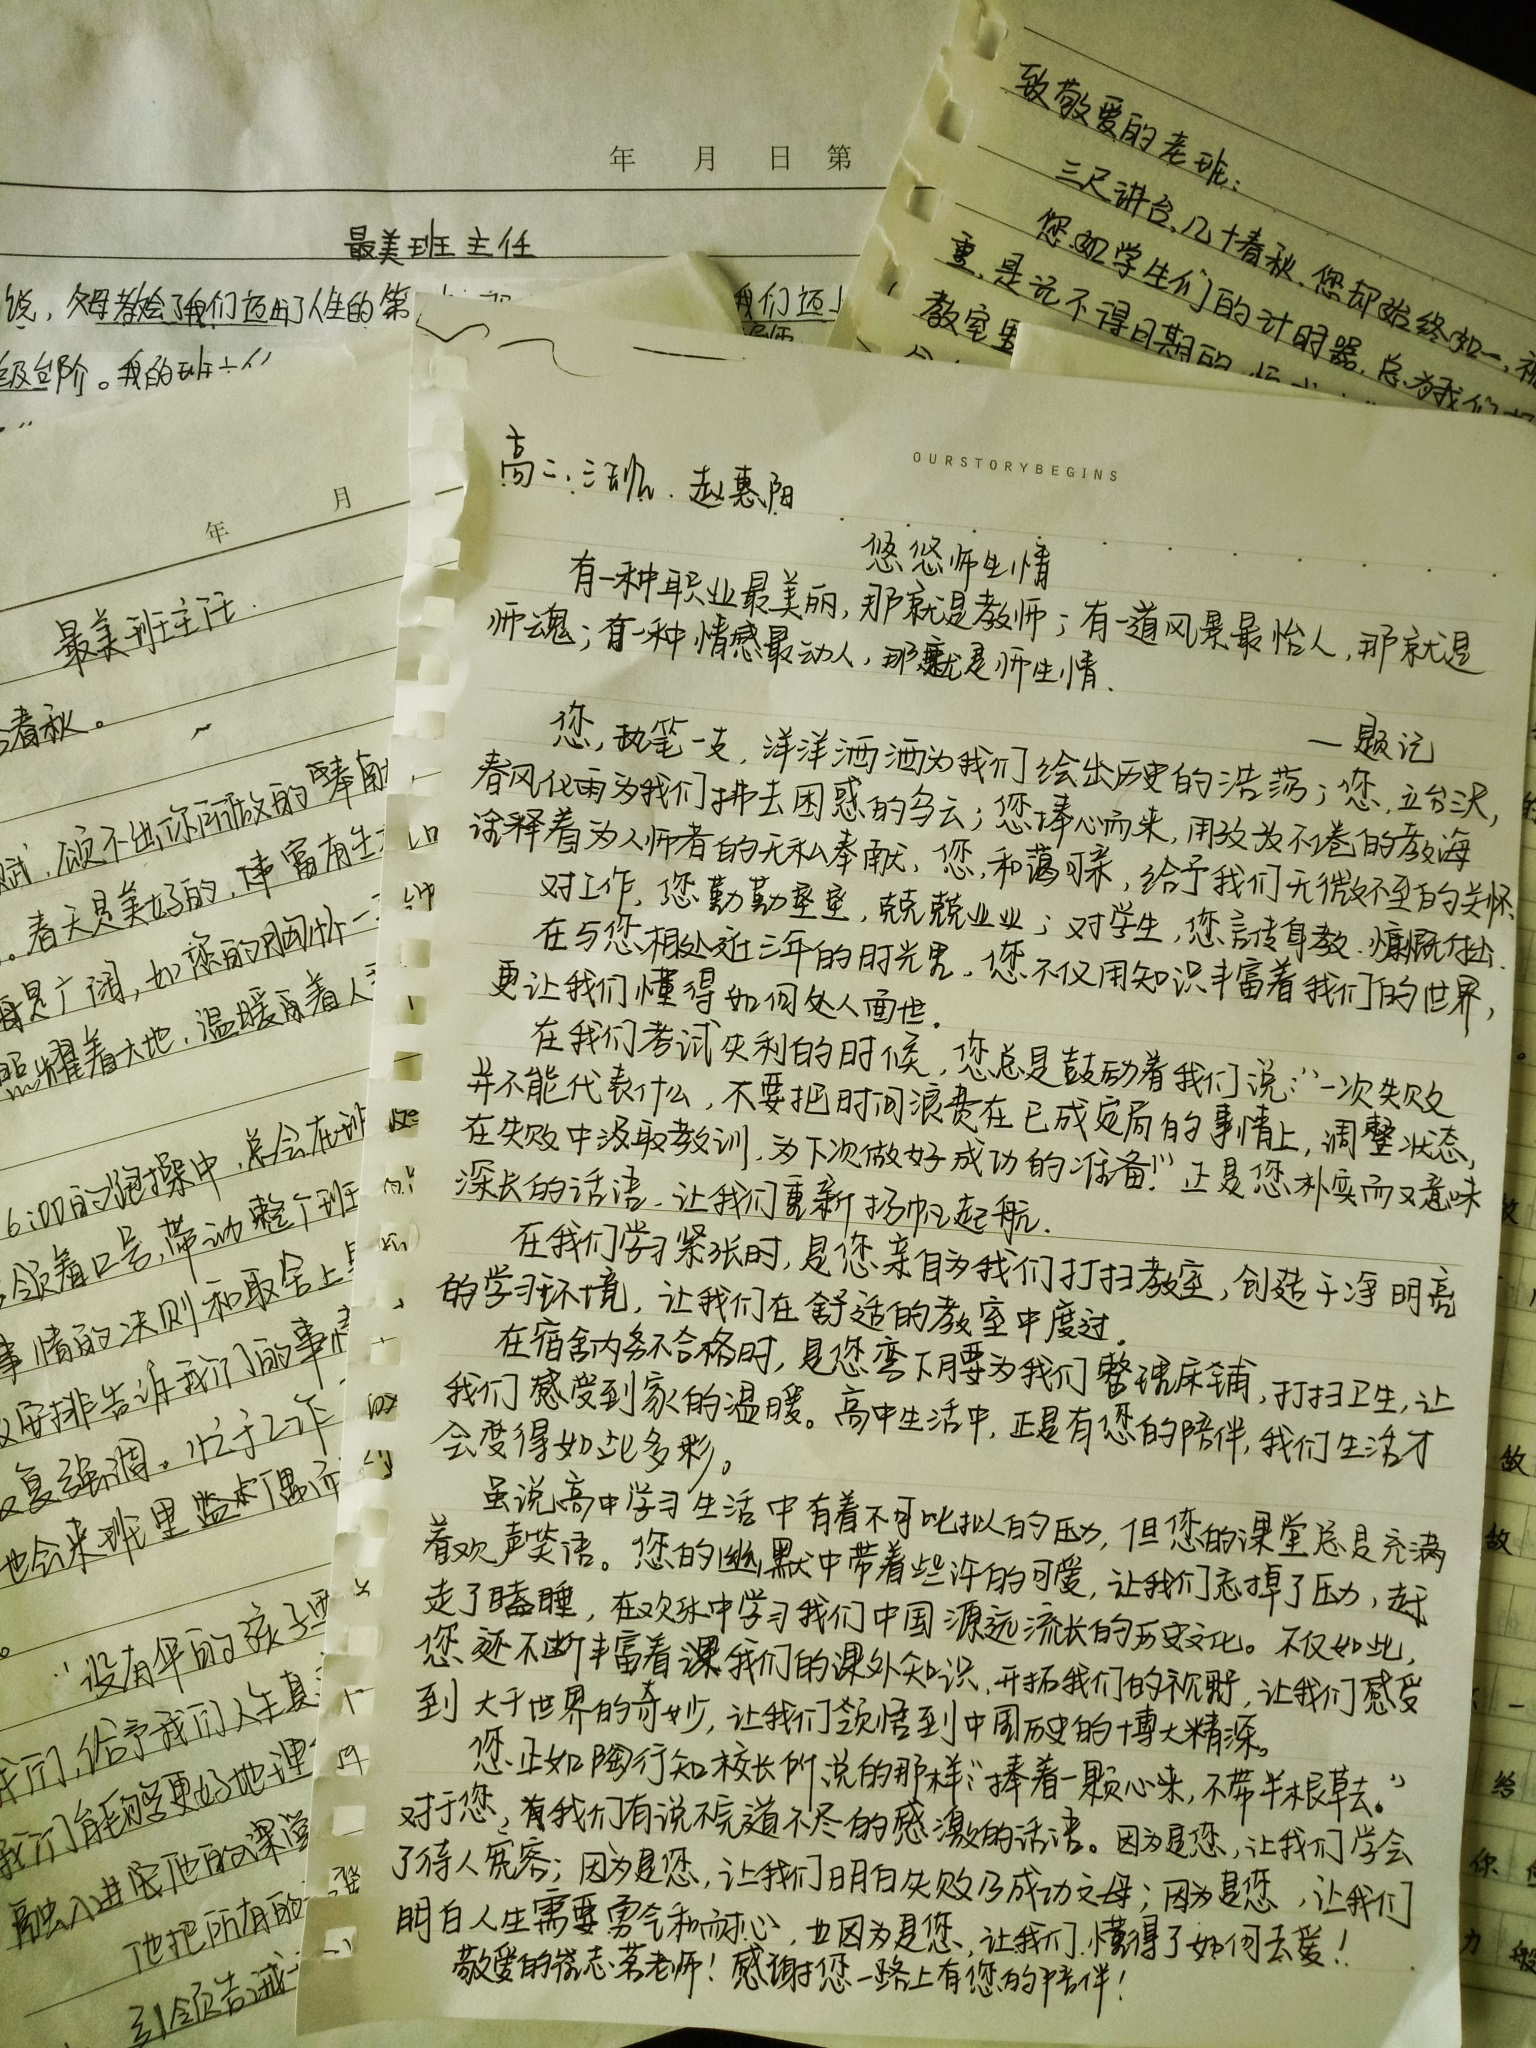 年 月 日 第
最美班主任
说，父母教会了我们迈出了人生的第
级台阶。我的班
我们迈
致敬爱的老班：
三尺讲台，几十春秋，您却始终如一，
您如学生们的计时器，总为我们
重，是记不得日期的
教室里
OURSTORYBEGINS
高二．三班．赵惠阳
悠悠师生情
有一种职业最美丽，那就是教师；有一道风景最怡人，那就是
师魂；有一种情感最动人，那就是师生情．
—题记
您，执笔一支，洋洋洒洒为我们绘出历史的浩荡；您，立台三尺，
春风化雨为我们拂去困惑的乌云；您捧心而来，用孜孜不卷的教诲
诠释着为人师者的无私奉献．您，和蔼可亲，给予我们无微不至的关怀．
对工作，您勤勤垦垦，兢兢业业；对学生，您言传身教．慷慨付出．
在与您相处近三年的时光里，您不仅用知识丰富着我们的世界，
更让我们懂得如何处人面世．
在我们考试失利的时候，您总是鼓励着我们说：“一次失败
并不能代表什么，不要把时间浪费在已成定局的事情上，调整状态，
在失败中汲取教训，为下次做好成功的准备！”正是您朴实而又意味
深长的话语．让我们重新扬帆起航．
在我们学习紧张时，是您亲自为我们打扫教室，创造干净明亮
的学习环境，让我们在舒适的教室中度过．
在宿舍内务不合格时，是您弯下腰为我们整理床铺，打扫卫生，让
我们感受到家的温暖。高中生活中，正是有您的陪伴，我们生活才
会变得如此多彩。
虽说高中学习生活中有着不可比拟的压力，但您的课堂总是充满
着欢声笑语。您的幽默中带着些许的可爱，让我们忘掉了压力，赶
走了瞌睡，在欢环中学习我们中国源远流长的历史文化。不仅如此，
您还不断丰富着我们的课外知识，开拓我们的视野，让我们感受
到大千世界的奇妙，让我们领悟到中国历史的博大精深。
您正如陶行知校长所说的那样：“捧着一颗心来，不带半根草去。”
对于您，我们有说不完道不尽的感激的话语。因为是您，让我们学会
了待人宽容；因为是您，让我们明白失败乃成功之母；因为是您，让我们
明白人生需要勇气和耐心，也因为是您，让我们懂得了如何去爱！
敬爱的 志 老师！感谢您一路上有您的陪伴！
年 月
最美班主任
春秋。
颂不出你所做的
春天是美好的，
广阔，如您的胸怀
照耀着大地，温暖着人
6:00的跑操中，总会在班
领着口号，带动整个班
事情的决则和取舍上
安排告诉我们的事情
反复强调。忙于工作
也会来班里监
“没有伞的孩子
我们，给予我们人生真
我们能够更好地理
融入进
他把所有的
引领告诫